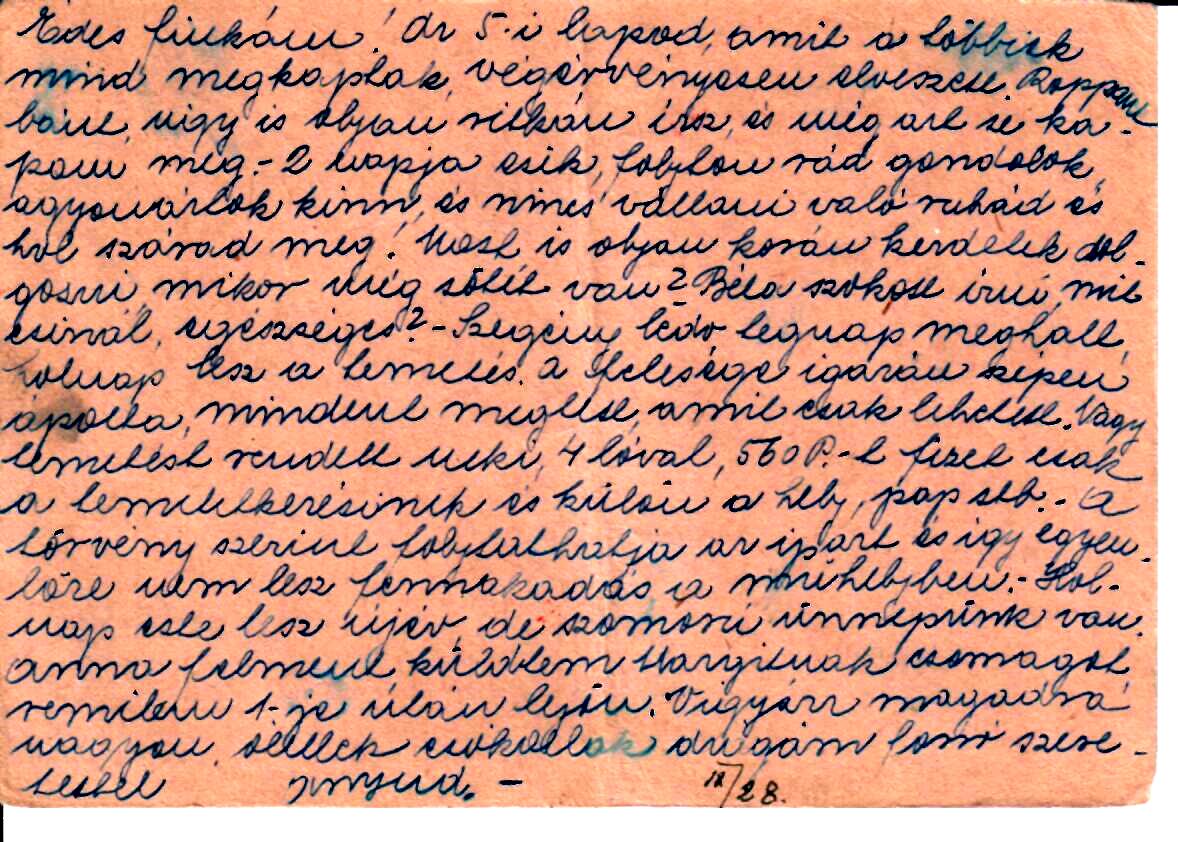 Édes fiukám! Az 5.-i lapod, amit a többiek
mind megkaptak, végérvényesen elveszett. Roppant
bánt, úgy is olyan ritkán írsz, és még azt se ka-
pom meg.- 2 napja esik, folyton rád gondolok,
agyonáztok kinn, és nincs váltani való ruhád és
hol szárad meg! Most is olyan korán kezdetek dol-
gozni, mikor még sötét van? Béla szokott írni, mit
csinál, egészséges? - Szegény tegnap meghalt,
holnap lesz a temetés. A felesége igazán szépen
ápolta, mindent megtett, amit csak lehetett. Nagy
temetést rendelt neki, 4 lóval, 560 P.-t fizet csak
a temetkezésinek és külön a hely, pap stb.- A
törvény szerint folytathatja az ipart és így egyen-
lőre nem lesz fennakadás a műhelyben.- Hol-
nap este lesz újév, de szomorú ünnepünk van.
Anna felment, küldtem Margitnak csomagot,
remélem 1-je után lejön. Vigyázz magadra
nagyon, ölellek csókollak drágám forró szere-
tettel anyud. -
28.